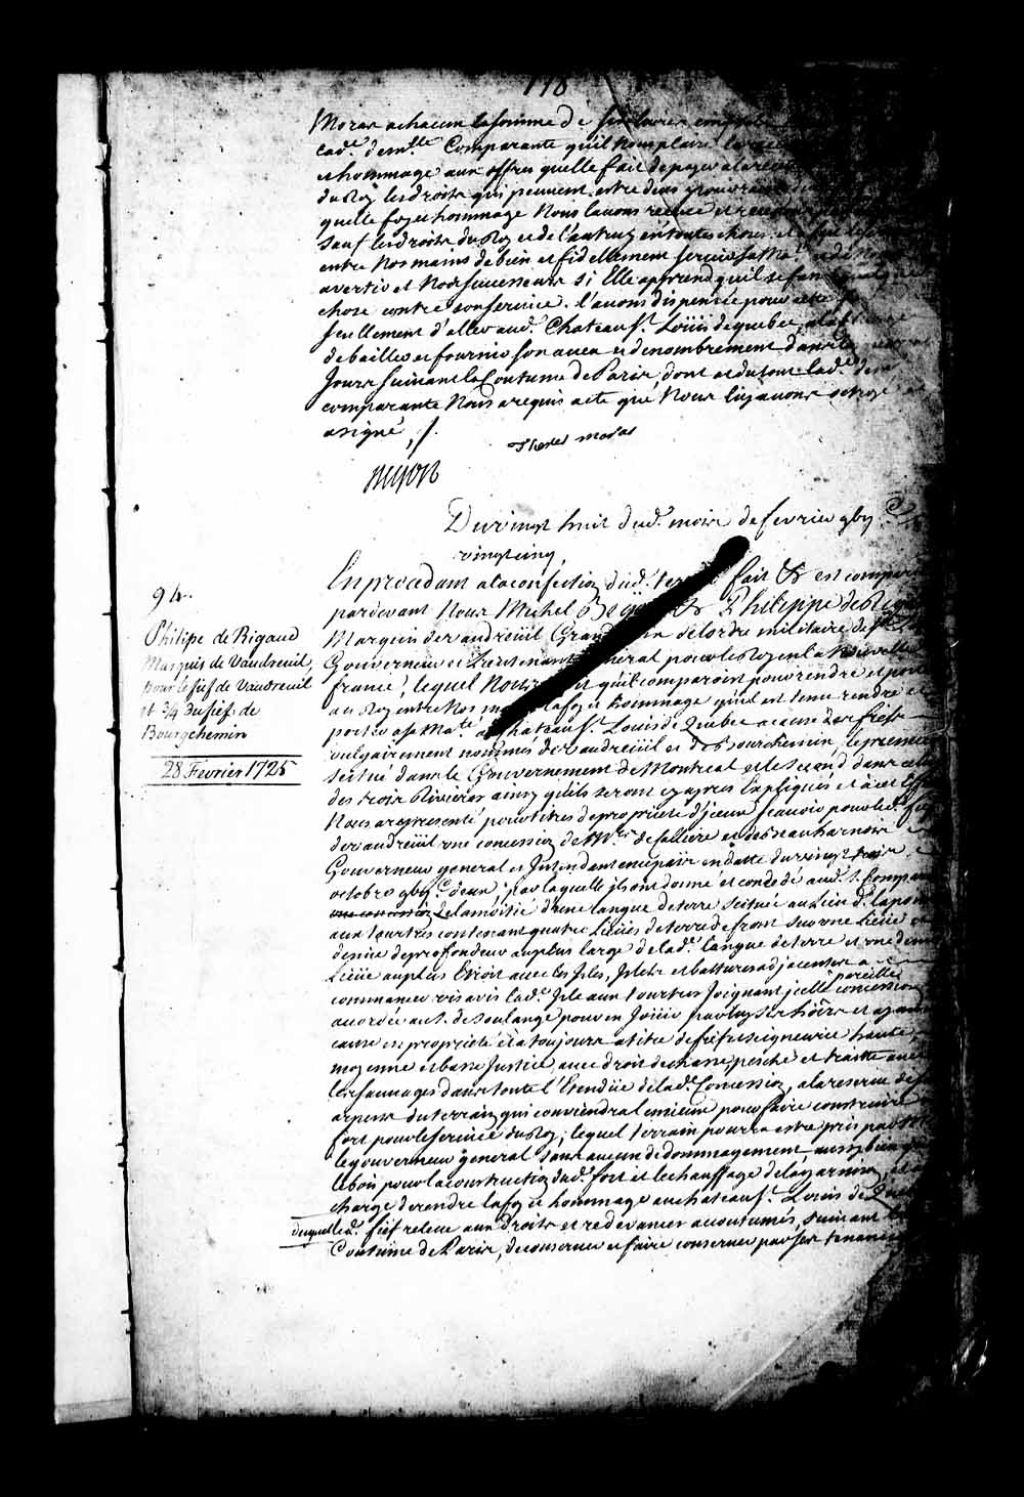 178
Moras a chacun la somme de six livres
cad.e dem.lle Comparante qu'il Nous plaise la
et hommage aux offres quelle fait de payer a la
du Roy les droits qui peuvent estre deus
quelle foy et hommage Nous lavons receue et
sauf les droits du Roy et de l'autruy en toutes choses et
entre Nos mains de bien et fidellement servir sa Ma.té
avertir et Nos successeurs si Elle apprend qu'il se fasse
chose contre son service. l'avons dispensée pour cette
seullement d'aller aud. Chateau S.t Loüis de quebec, a la charge
de bailler et fournir son aveu et denombrement dans les
Jours suivant la Coutume de Paris, dont et du tout lad.e dem.lle
comparante Nous a requis acte que Nous luy avons octroyé et
a signé, /.
Therese moras
Begon
Du vingt huit dud. mois de fevrier gbii.C
vingt cinq,
En procedant a la confection dud. terrier fait & est comparu
pardevant Nous Michel Begon & Philippe de Rigaud
Marquis de vaudreüil Grand de lordre militaire de S.t
Gouverneur et Lieutenant General pour le Roy en la Nouvelle
france, lequel Nous dit qu'il comparoist pour rendre et porter
au Roy entre Nos mains la foy et hommage qu'il est tenu rendre et
porter a sa Ma.té au Chateau S.t Louis de Quebec a cause des fiefs
vulgairement nommés de vaudreüil et de Bourchemin, le premier
scitué dans le Gouvernement de Montreal et le second dans celuy
des trois Rivieres ainsy qu'ils seront cy apres Expliqués et a cet Effet
Nous a representé pour titres de proprieté d'iceux scavoir pour led. fief
de vaudreüil une concession de M.rs de Calliere et de Beauharnois
Gouverneur general et Intendant en ce païs en datte du vingt trois
octobre gbii.C deux, par laquelle ils ont donné et concedé aud. S. Comparant
la moitié d'une langue de terre scituée au Lieu d.
aux tourtes contenant quatre Lieües de terre de front sur une Lieüe et
demie de profondeur au plus large de lad.e langue de terre et une demie
Lieüe au plus Etroit avec les Isles, Islets et battures adjacentes a
commancer vis avis lad.e Isle aux tourtes Joignant icelle pareille concession
accordée au S. de Soulange pour en Joüir par luy ses hoirs et ayans
cause en proprieté et a toujours a titre de fief et seigneurie haute,
moyenne et basse Justice, avec droit de chasse, pesche et traitte avec
les sauvages dans toute l'Etendüe de lad.e Concession, a la reserve de six
arpens du terrain qui conviendra le mieux pour faire construire un
fort pour le service du Roy, lequel terrain pourra estre pris par
le gouverneur general sans aucun dedommagement, aussy bien que
le bois pour la construction dud. fort et le chauffage de la garnison, et a
charge de rendre la foy et hommage au chateau S.t Louis de Quebec
duquel led. fief releve aux droits et redevances accoutumés, suivant la
Coutume de Paris, de conserver et faire conserver par ses tenanciers
94.
Philipe de Rigaud
Marquis de Vaudreuil,
pour le fief de Vaudreuil
et 3/4 du fief de
Bourgchemin
28 Fevrier 1725